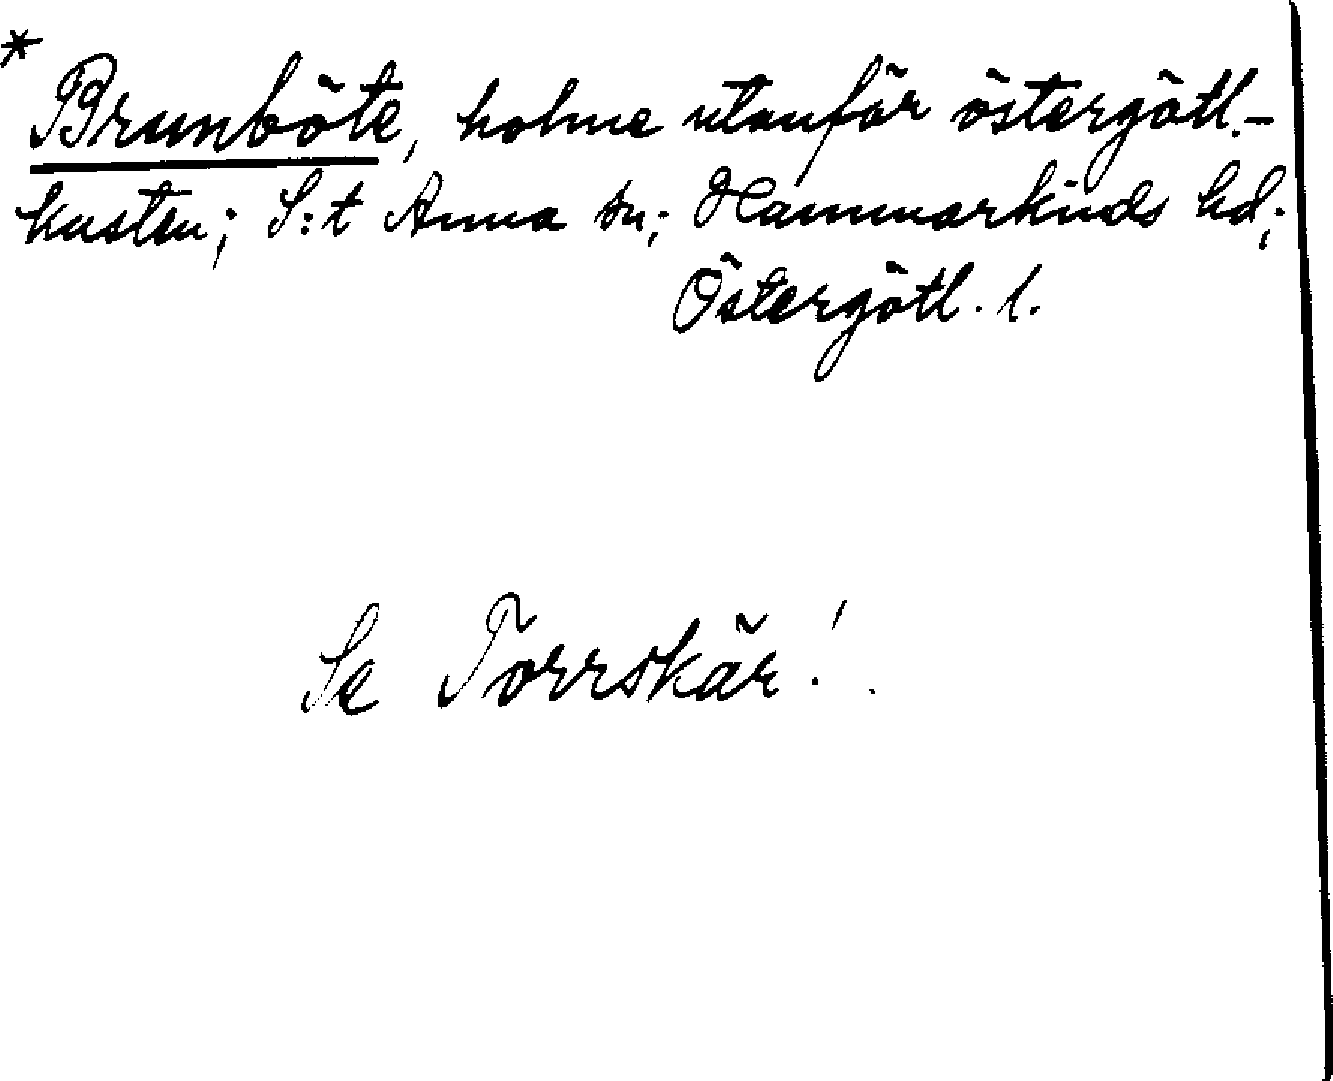 * Brunböte, holme utanför östergötl.-
kusten; S:t Anna sn; Hammarkinds hd;
Östergötl. l.
Se Torrskär!